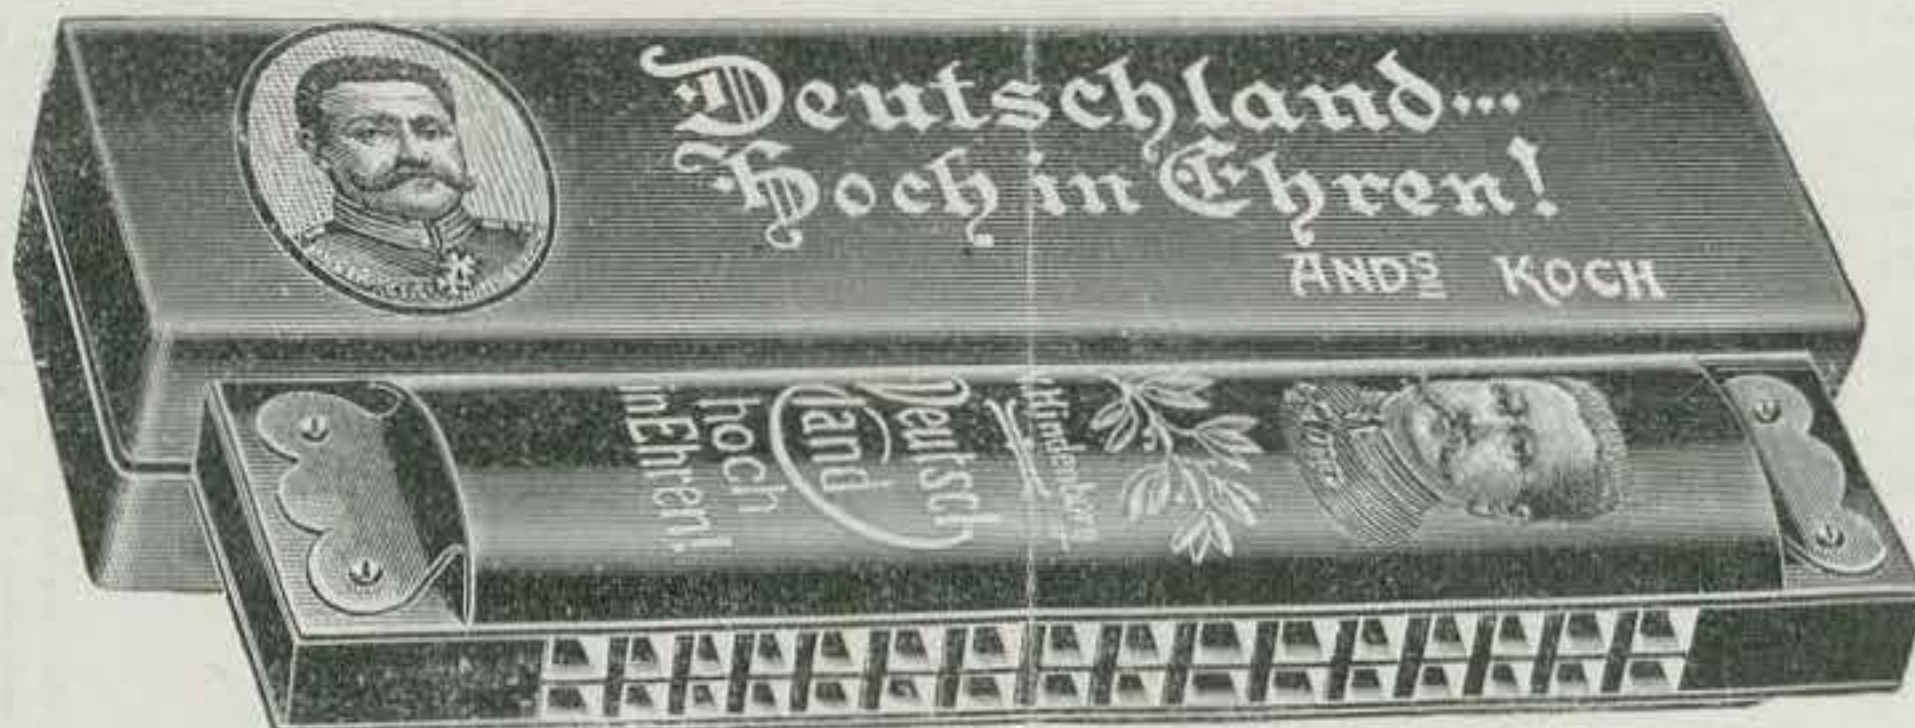 Deutschland...
Hoch in Ehren!
ANDS KOCH
v. Hindenburg
Deutsch
land
hoch
in Ehren!